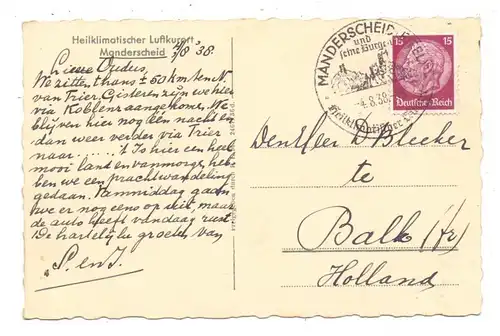 Heilklimatischer Luftkurort
Manderscheid 4/8 '38.
Lieve Oudus,
We zitten thans ± 60 km ten N.
van Trier. Gisteren zijn we hier
via Koblenz aangekomen. We
blijven hier nog een nacht en
dan weer verder via Trier
naar.....? 't Is hier een heel
mooi land en vanmorgen heb
ben we een prachtwandeling
gedaan. Vanmiddag gaan
we er nog eens op uit, maar
de auto heeft vandaag rust
De hartelijke groeten van
S. en J.
MANDERSCHEID
und
seine Burgen
4.8.38
15 15
Deutsches Reich
Den Heer D Bleeker
te
Balk (Fr)
Holland